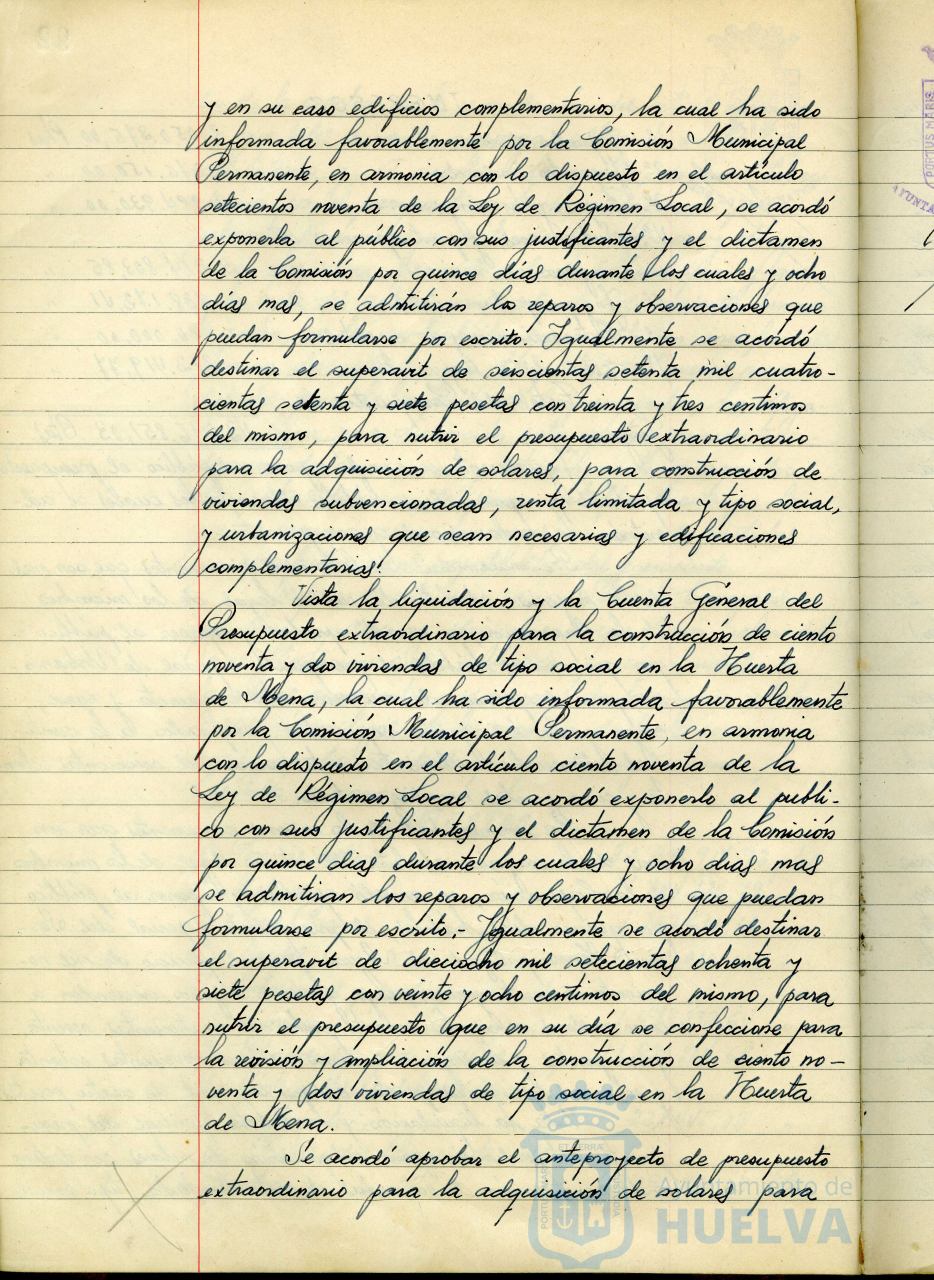 y en su caso edificios complementarios, la cual ha sido
informada favorablemente por la Comisión Municipal
Permanente, en armonia con lo dispuesto en el artículo
setecientos noventa de la Ley de Régimen Local, se acordó
exponerla al publico con sus justificantes y el dictamen
de la Comisión por quince días durante los cuales y ocho
días mas, se admitirán los reparos y observaciones que
puedan formularse por escrito. Igualmente se acordó
destinar el superavit de seiscientas setenta mil cuatro-
cientas setenta y siete pesetas con treinta y tres centimos
del mismo, para nutrir el presupuesto extraordinario
para la adquisición de solares, para construcción de
viviendas subvencionadas, renta limitada y tipo social,
y urbanizaciones que sean necesarias y edificaciones
complementarias.
Vista la liquidación y la Cuenta General del
Presupuesto extraordinario para la construcción de ciento
noventa y dos viviendas de tipo social en la Huerta
de Mena, la cual ha sido informada favorablemente
por la Comisión Municipal Permanente, en armonia
con lo dispuesto en el artículo ciento noventa de la
Ley de Régimen Local se acordó exponerlo al publi-
co con sus justificantes y el dictamen de la Comisión
por quince dias durante los cuales y ocho dias mas
se admitiran los reparos y observaciones que puedan
formularse por escrito.- Igualmente se acordó destinar
el superavit de dieciocho mil setecientas ochenta y
siete pesetas con veinte y ocho centimos del mismo, para
nutrir el presupuesto que en su día se confeccione para
la revisión y ampliación de la construcción de ciento no-
venta y dos viviendas de tipo social en la Huerta
de Mena.
Se acordó aprobar el anteproyecto de presupuesto
extraordinario para la adquisición de solares para
Ayuntamiento de
HUELVA
PORTUS MARIS